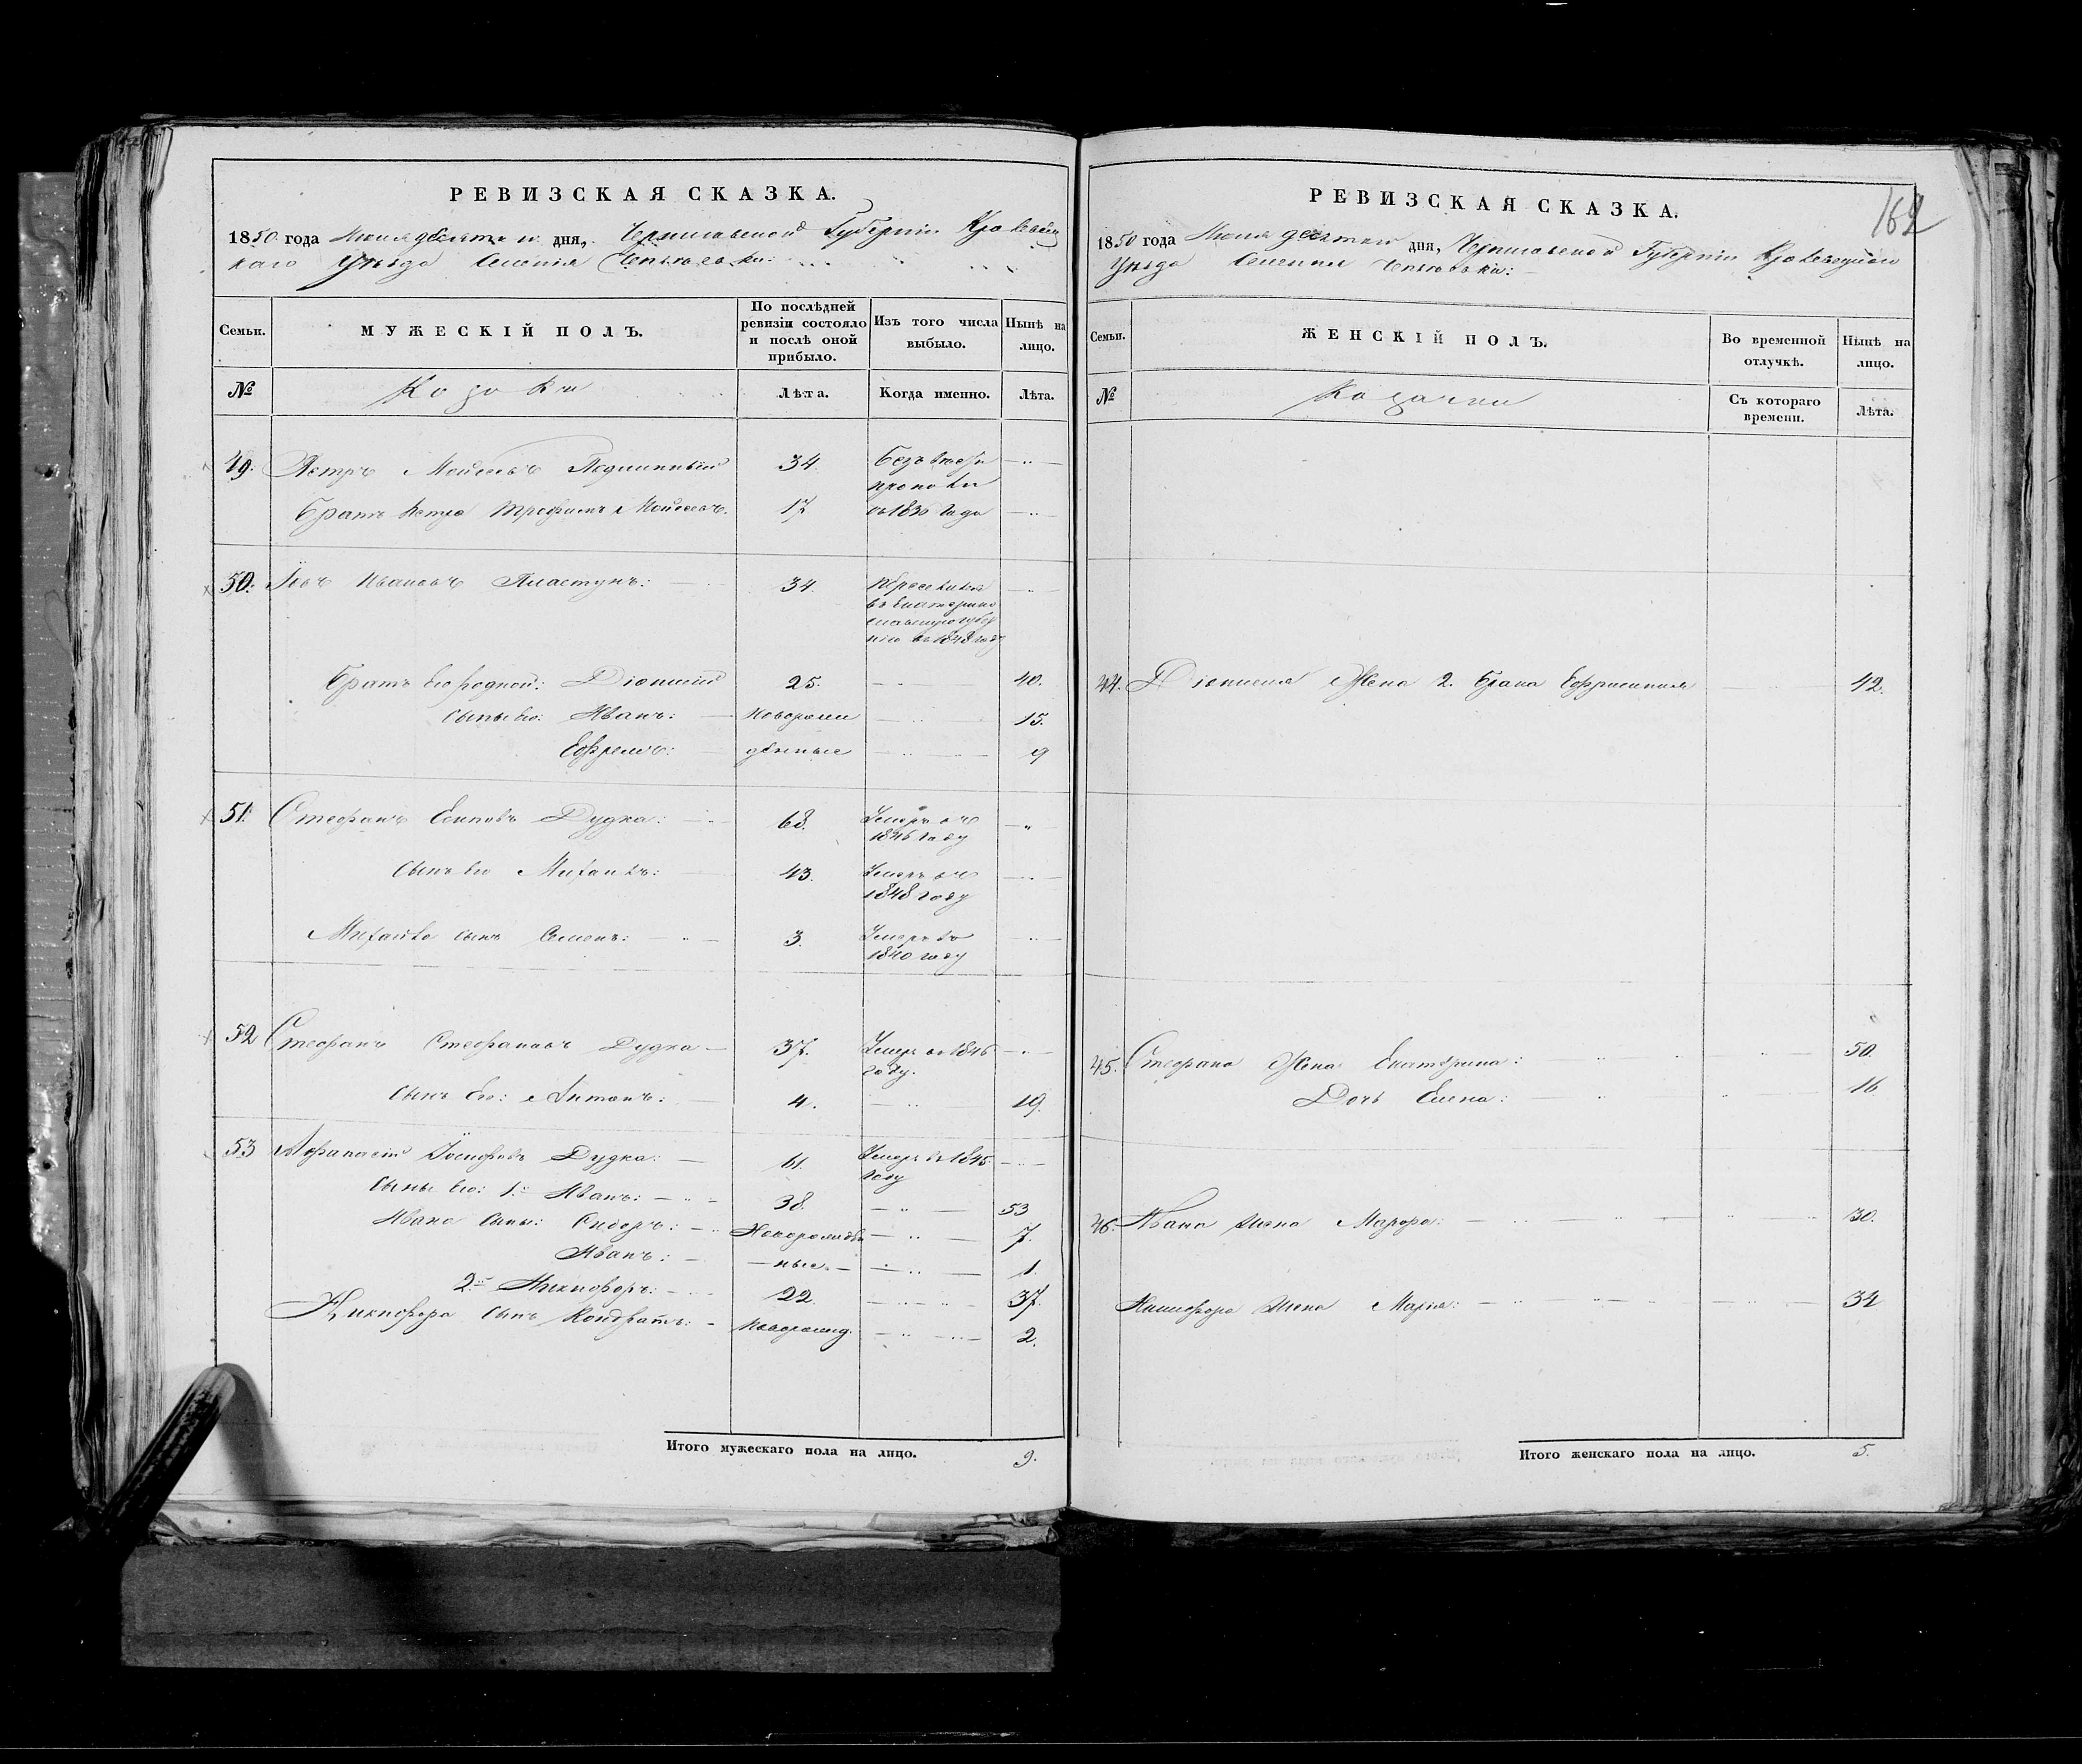 РЕВИЗСКАЯ СКАЗКА.
1850 года Июня десятаго дня, Черниговской Губерніи Кролевец
каго Уѣзда Селенія
Семьи.
МУЖЕСКІЙ ПОЛЪ.
По послѣдней ревизіи состояло и послѣ оной прибыло.
Изъ того числа выбыло.
Нынѣ на лицо.
№
Козаки
Лѣта.
Когда именно.
Лѣта.
49. Петръ Мойсеевъ 34. Безъ вѣсти
пропали
Братъ Петра Трофимъ Мойсеевъ. 17 съ 1830 года
50. Іовъ Ивановъ Пластунъ: 34.
въ Екатерино
славскую губер
нію въ 1848 году
Братъ его родной: Діонисій 25. 40.
Сыны его: Иванъ: Новорож 15.
Ефремъ: денные 9
51. Стефанъ Есиповъ Дудка: 68. Умеръ въ
1846 году
Сынъ его Михаилъ: 43. Умеръ въ
1848 году
Михаила сынъ Семенъ: 3. Умеръ въ
1840 году
52 Стефанъ Стефановъ Дудка 37. Умеръ въ 1846
году.
Сынъ Его: Антонъ: 4. 19.
53 Афанасій Іосифовъ Дудка: 61. Умеръ въ 1845
году
Сыны его: 1: Иванъ: 38. 53
Ивана Сыны: Сидоръ: Новорожден 7.
Иванъ: ные 1.
2: Никифоръ: 22. 37.
Никифора Сынъ Кондратъ: Новорожд. 2.
Итого мужескаго пола на лицо. 9.
162
РЕВИЗСКАЯ СКАЗКА.
1850 года Июня десятаго дня, Черниговской Губерніи Кролевецкаго
Уѣзда Селенія
Семьи.
ЖЕНСКІЙ ПОЛЪ.
Во временной отлучкѣ.
Нынѣ на лицо.
№
Козачки
Съ котораго времени.
Лѣта.
44. Діонисія Жена 2. брака Ефросинія 42.
45. Стефана Жена Екатерина: 50.
Дочь Елена: 16
46. Ивана жена Марфа: 30.
Никифора жена Марія: 34
Итого женскаго пола на лицо. 5.